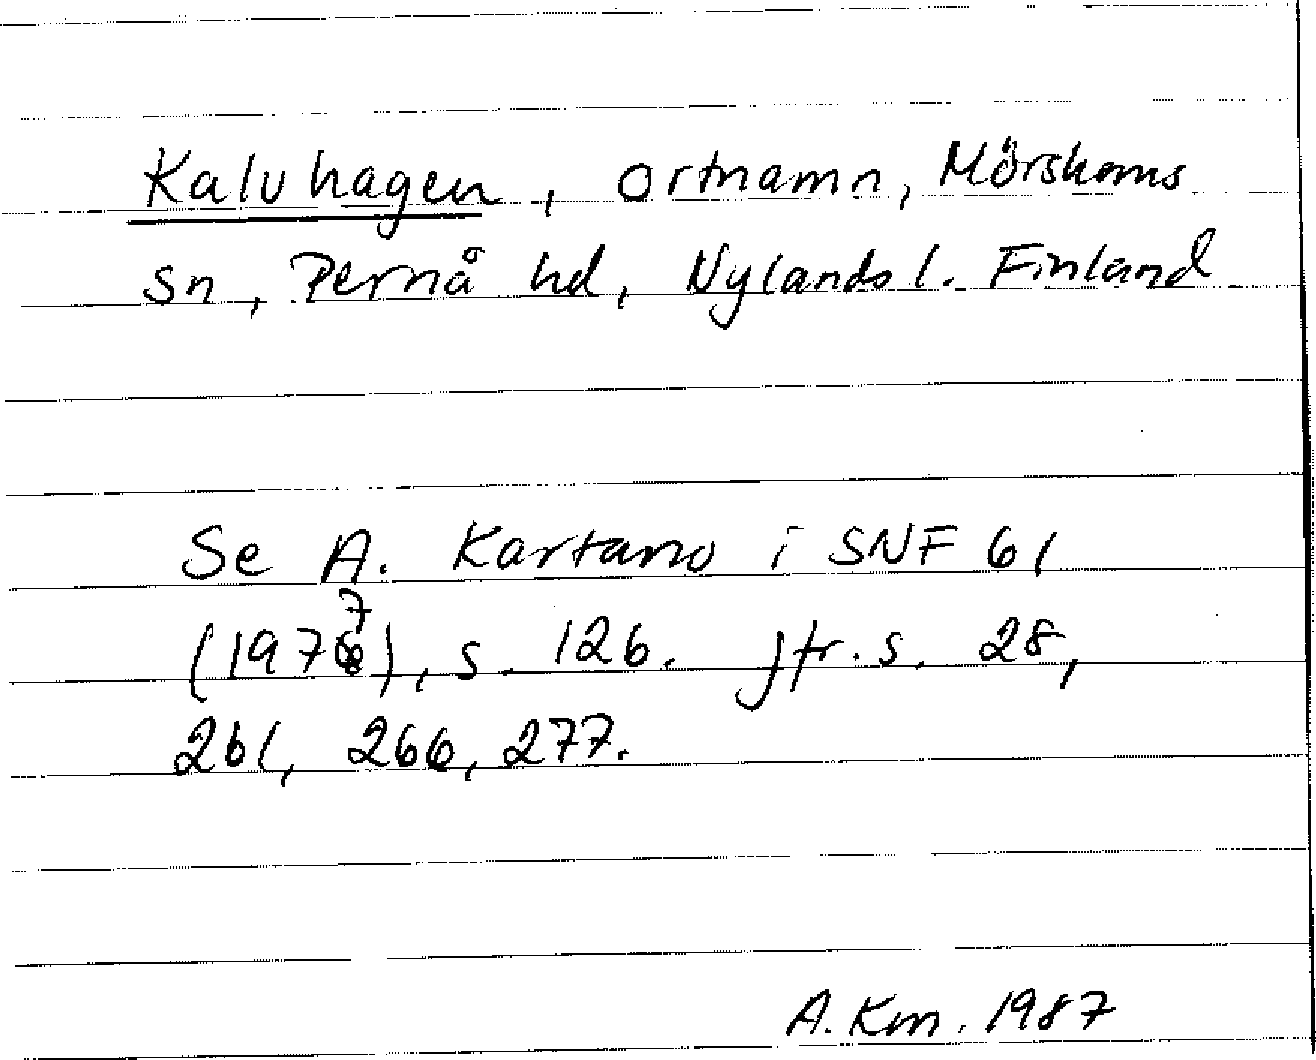 Kalvhagen, ortnamn, Mörskoms
sn, Pernå hd, Nylands l. Finland
Se A. Kartano i SNF 61
(1977), s. 126. Jfr. s. 28,
261, 266, 277.
A. Km. 1987